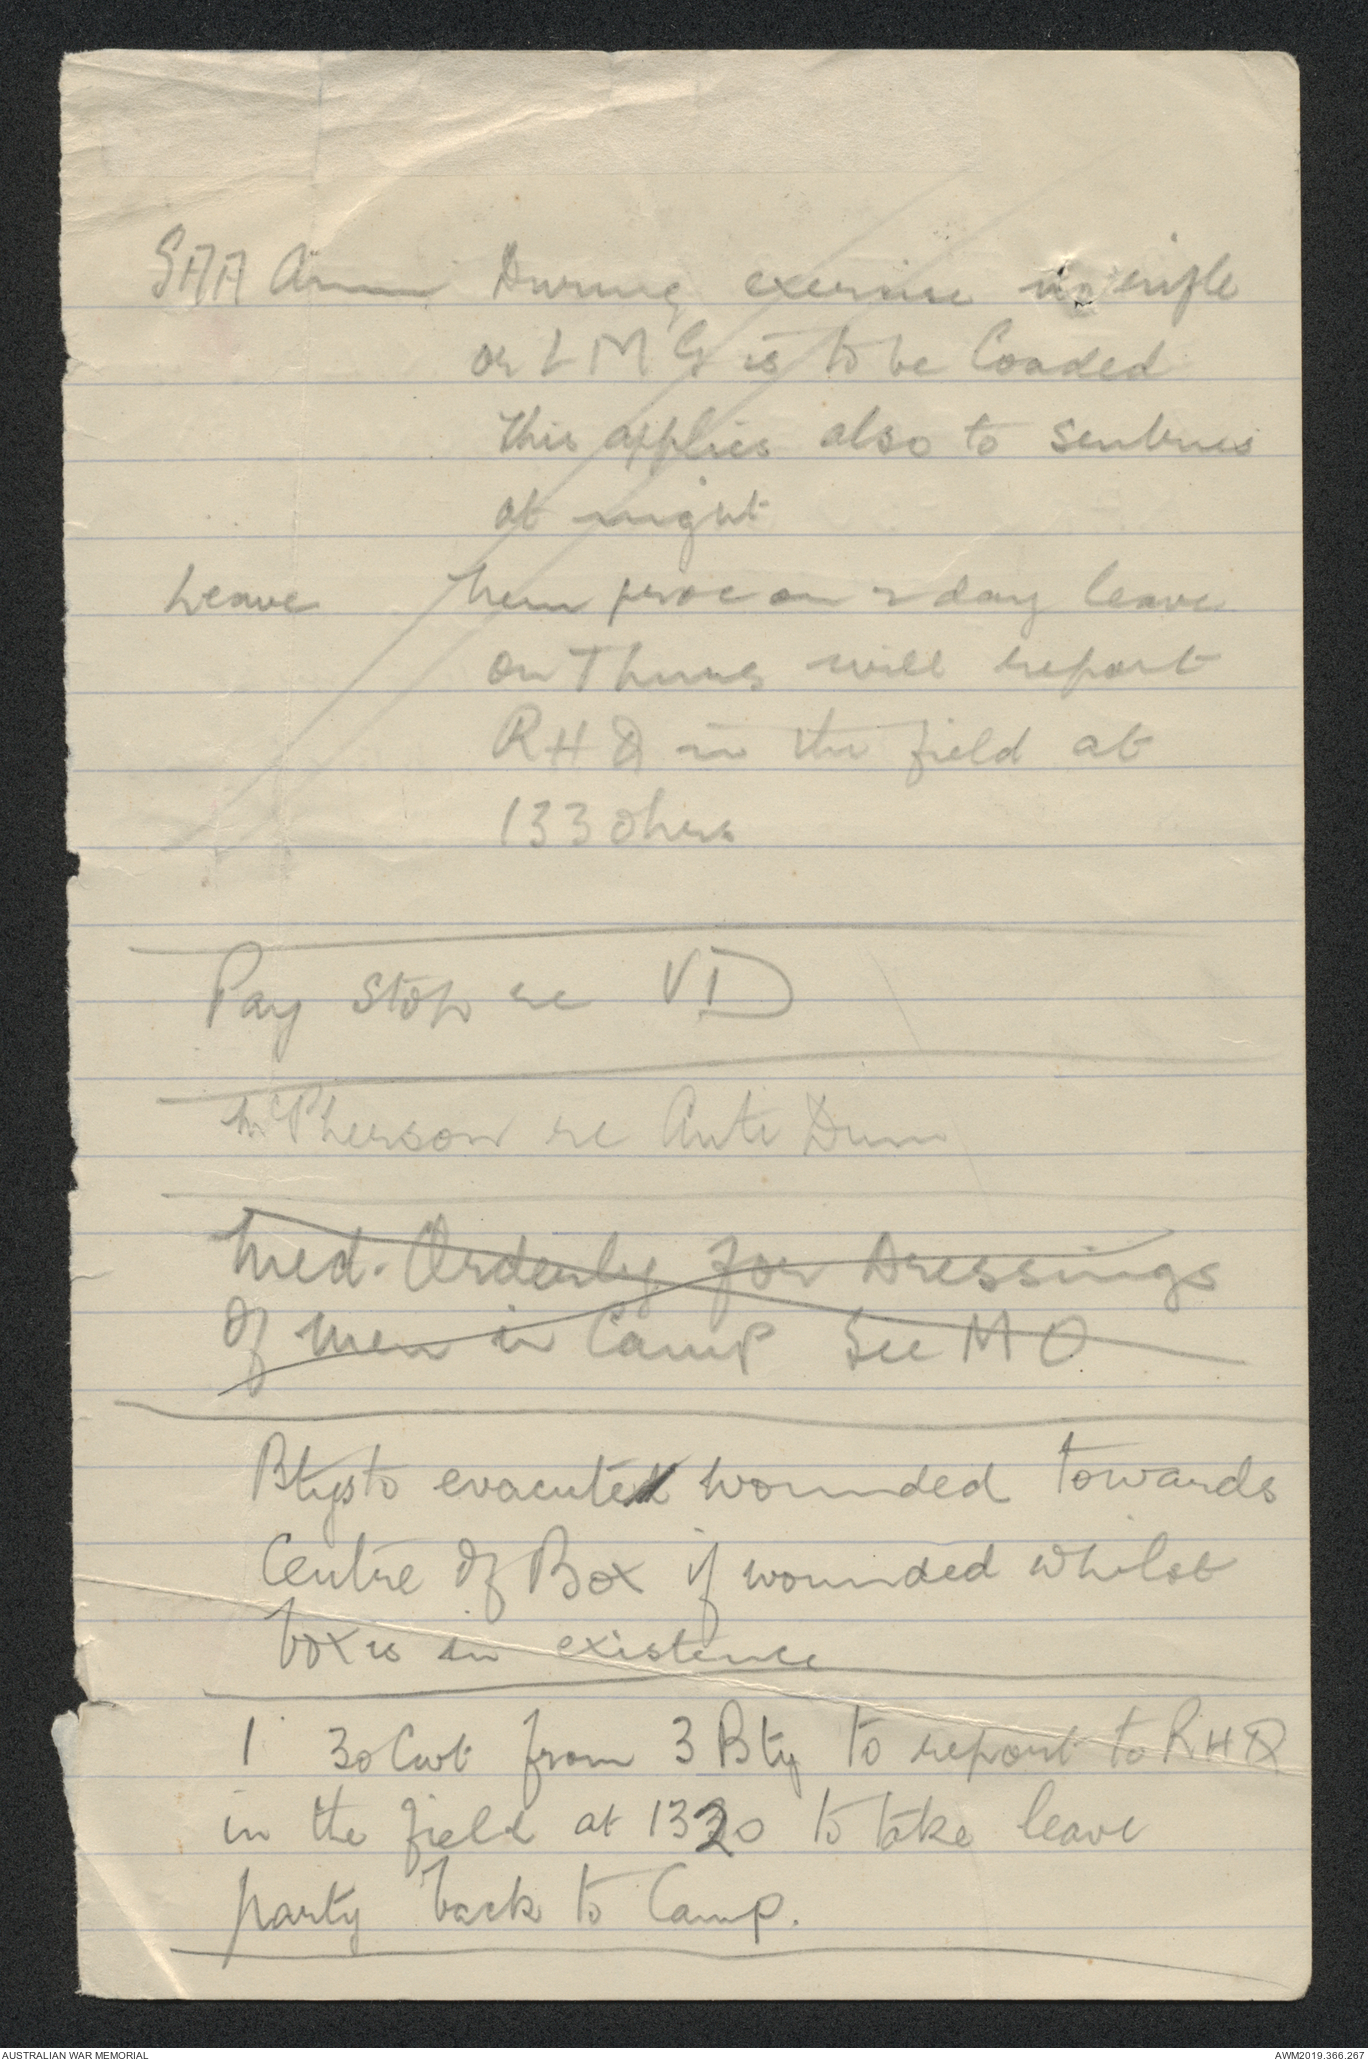 SAA Amm During exercise no rifle
or LMG is to be loaded
This applies also to sentries
at night
Leave Men proc on 2 day leave
on Thurs will report
RHQ in the field at
1330hrs
Pay Stop re VD
McPherson re Anti Dim
Med. Orderly for Dressings
of men in Camp See MO
Btys to evacute wounded towards
Centre of Box if wounded whilst
box is in existence
1 30 Cwt from 3 Bty to report to RHQ
in the field at 1320 to take leave
party back to Camp.
AUSTRALIAN WAR MEMORIAL
AWM2019.366.267